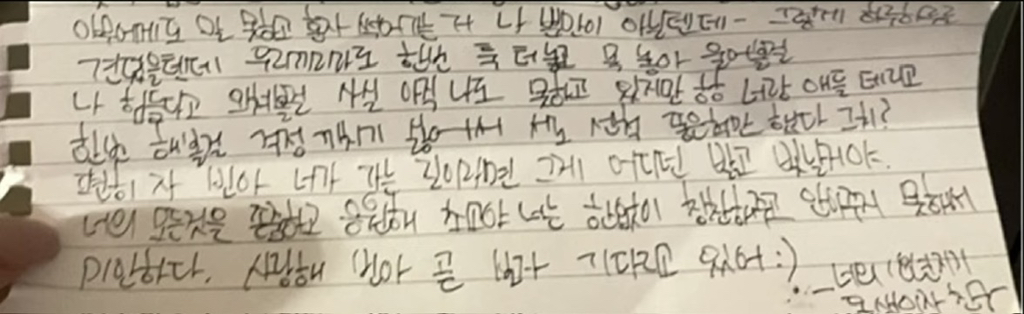 아무에게도 말 못하고 혼자 썩어가는 거 나 뿐만이 아닐텐데- 그렇게 하루하루
견뎠을텐데 우리끼리라도 한번 툭 터놓고 목 놓아 울어볼걸
나 힘들다고 외쳐볼걸 사실 아직 나도 못하고 있지만 항상 너랑 애들 데리고
한번 해볼걸 걱정 끼치기 싫어서 서로 선척 같은것만 했다 그치?
편히 자 빈아 너가 가는 길이라면 그게 어디던 밝고 빛날거야.
너의 모든것을 존중하고 응원해 최고야 너는 한없이 칭찬해주고 안아주지 못해서
미안하다. 사랑해 빈아 곧 보자 기다리고 있어 :)
- 너의
동생이자 친구